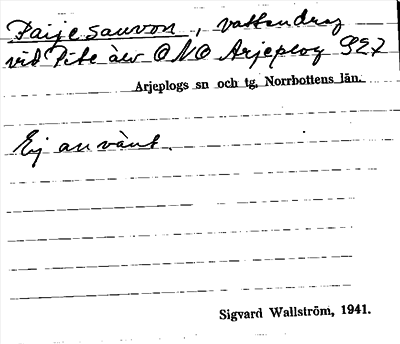 Paijesauvon, vattendrag
vid Pite älv ONO Arjeplog 927
Arjeplogs sn och tg, Norrbottens län.
Ej använt.
Sigvard Wallström, 1941.